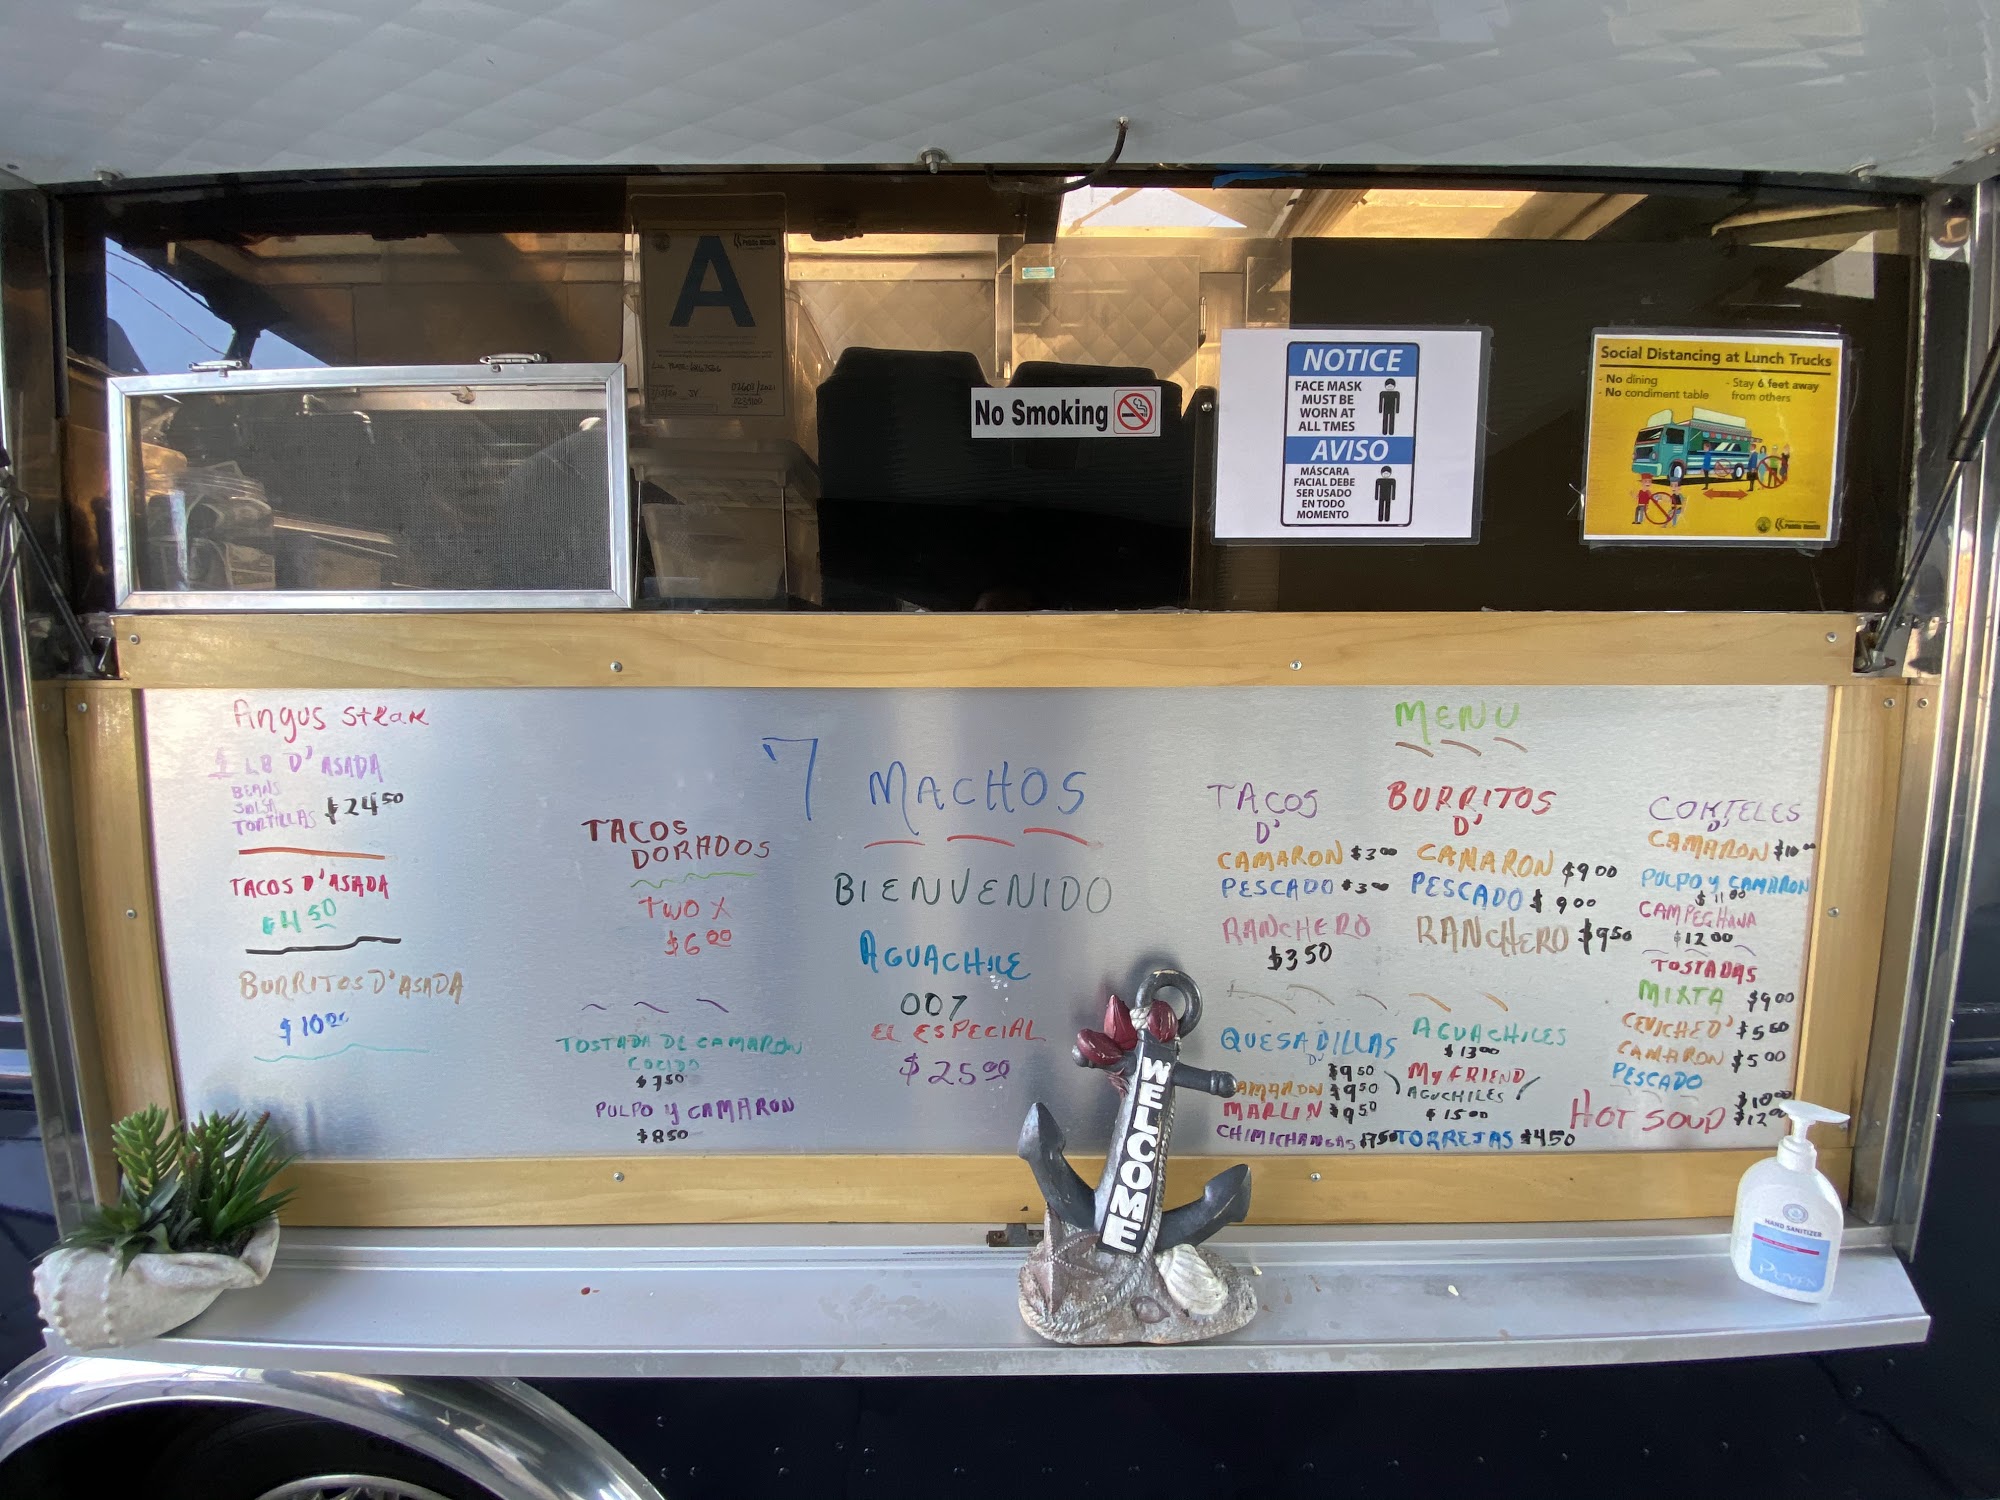 A
No Smoking
NOTICE
FACE MASK
MUST BE
WORN AT
ALL TMES
AVISO
MÁSCARA
FACIAL DEBE
SER USADO
EN TODO
MOMENTO
Social Distancing at Lunch Trucks
- No dining
- No condiment table
- Stay 6 feet away
from others
Public Health
Angus steak
1 LB D' ASADA
BEANS
SALSA
TORTILLAS $24 50
TACOS D'ASADA
$4 50
BURRITOS D'ASADA
$10 00
TACOS
DORADOS
TWO X
$6 00
TOSTADA DE CAMARON
COCIDO
$7 50
PULPO Y CAMARON
$8 50
7 MACHOS
BIENVENIDO
AGUACHILE
007
EL ESPECIAL
$25 00
MENU
TACOS
D'
CAMARON $3 00
PESCADO $3 00
RANCHERO
$3 50
QUESADILLAS
D' $9 50
CAMARON $9 50
MARLIN $9 50
CHIMICHANGAS $7 50
BURRITOS
D'
CAMARON $9 00
PESCADO $9 00
RANCHERO $9 50
AGUACHILES
$13 00
MY FRIEND
AGUCHILES
$15 00
TORREJAS $4 50
COKTELES
D'
CAMARON $10 00
PULPO Y CAMARON
$11 00
CAMPECHANA
$12 00
TOSTADAS
MIXTA $9 00
CEVICHE D' $5 50
CAMARON $5 00
PESCADO
HOT SOUP $10 00
$12 00
WELCOME
HAND SANITIZER